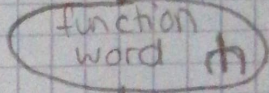 function
word